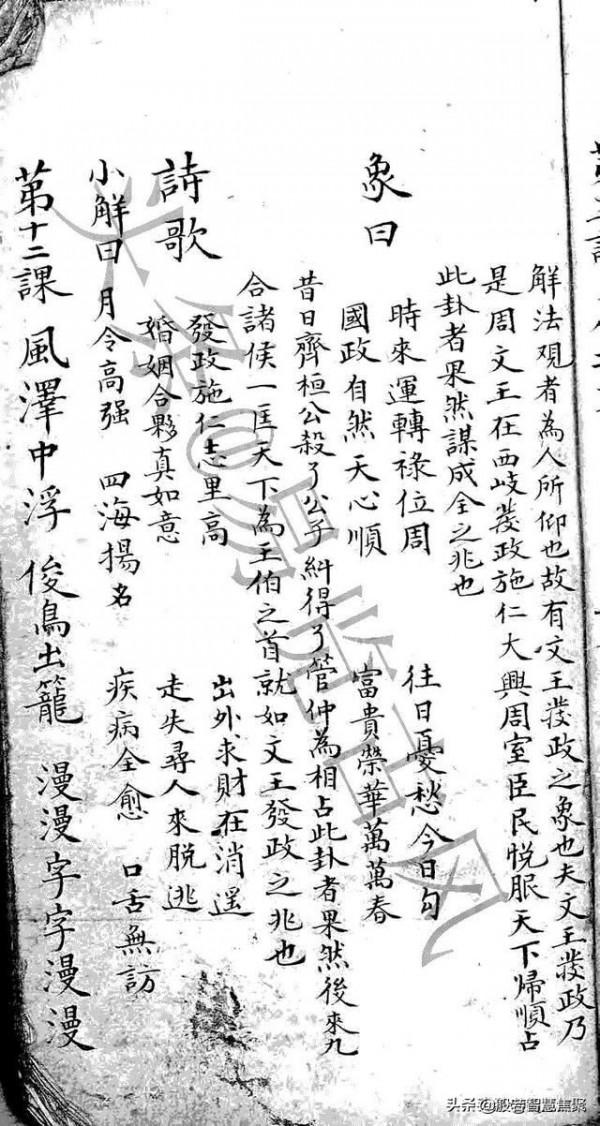 解法观者為人所仰也故有文王發政之象也夫文王發政乃
是周文王在西岐發政施仁大興周室臣民悅服天下帰順占
此卦者果然謀成全之兆也
象曰
時來運轉祿位周 往日憂愁今日勾
國政自然天心順 富貴榮華萬萬春
昔日齊桓公殺了公子糾得了管仲為相占此卦者果然後來九
合諸侯一匡天下為王伯之首就如文王發政之兆也
詩歌
發政施仁志里高 出外求財在消遥
婚姻合夥真如意 走失尋人來脱逃
小解曰 月令高强 四海揚名 疾病全愈 口舌無訪
第十二課 風澤中浮 俊鳥出籠 漫漫字字漫漫
头条@般若智慧焦聚